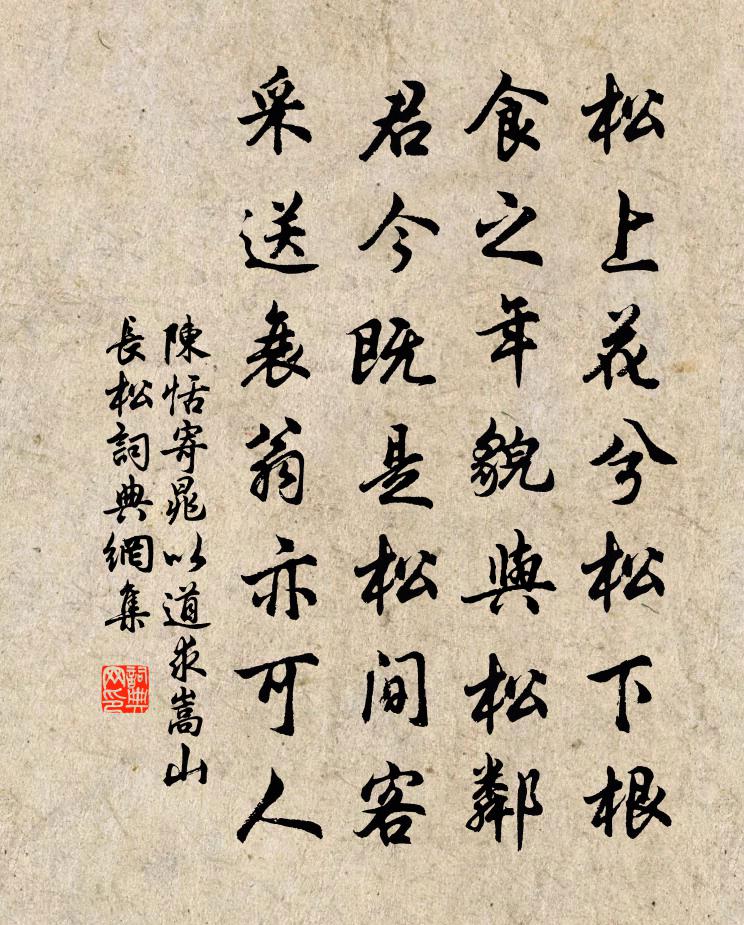 松上花兮松下根
食之年貌與松鄰
君今既是松間客
采送衰翁亦可人
陳恬寄晁以道求嵩山
長松詞典網集
詞典
网印